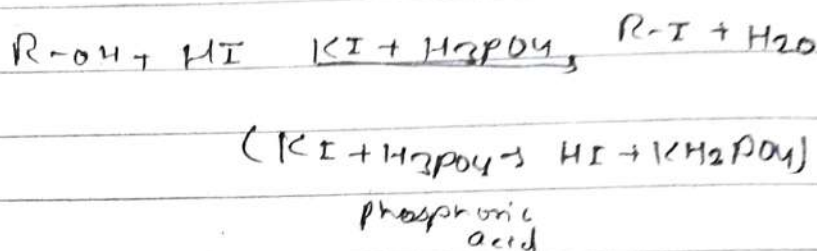 R-OH + HI KI + H3PO4, R-I + H2O
(KI + H3PO4 → HI + KH2PO4)
phosphoric
acid